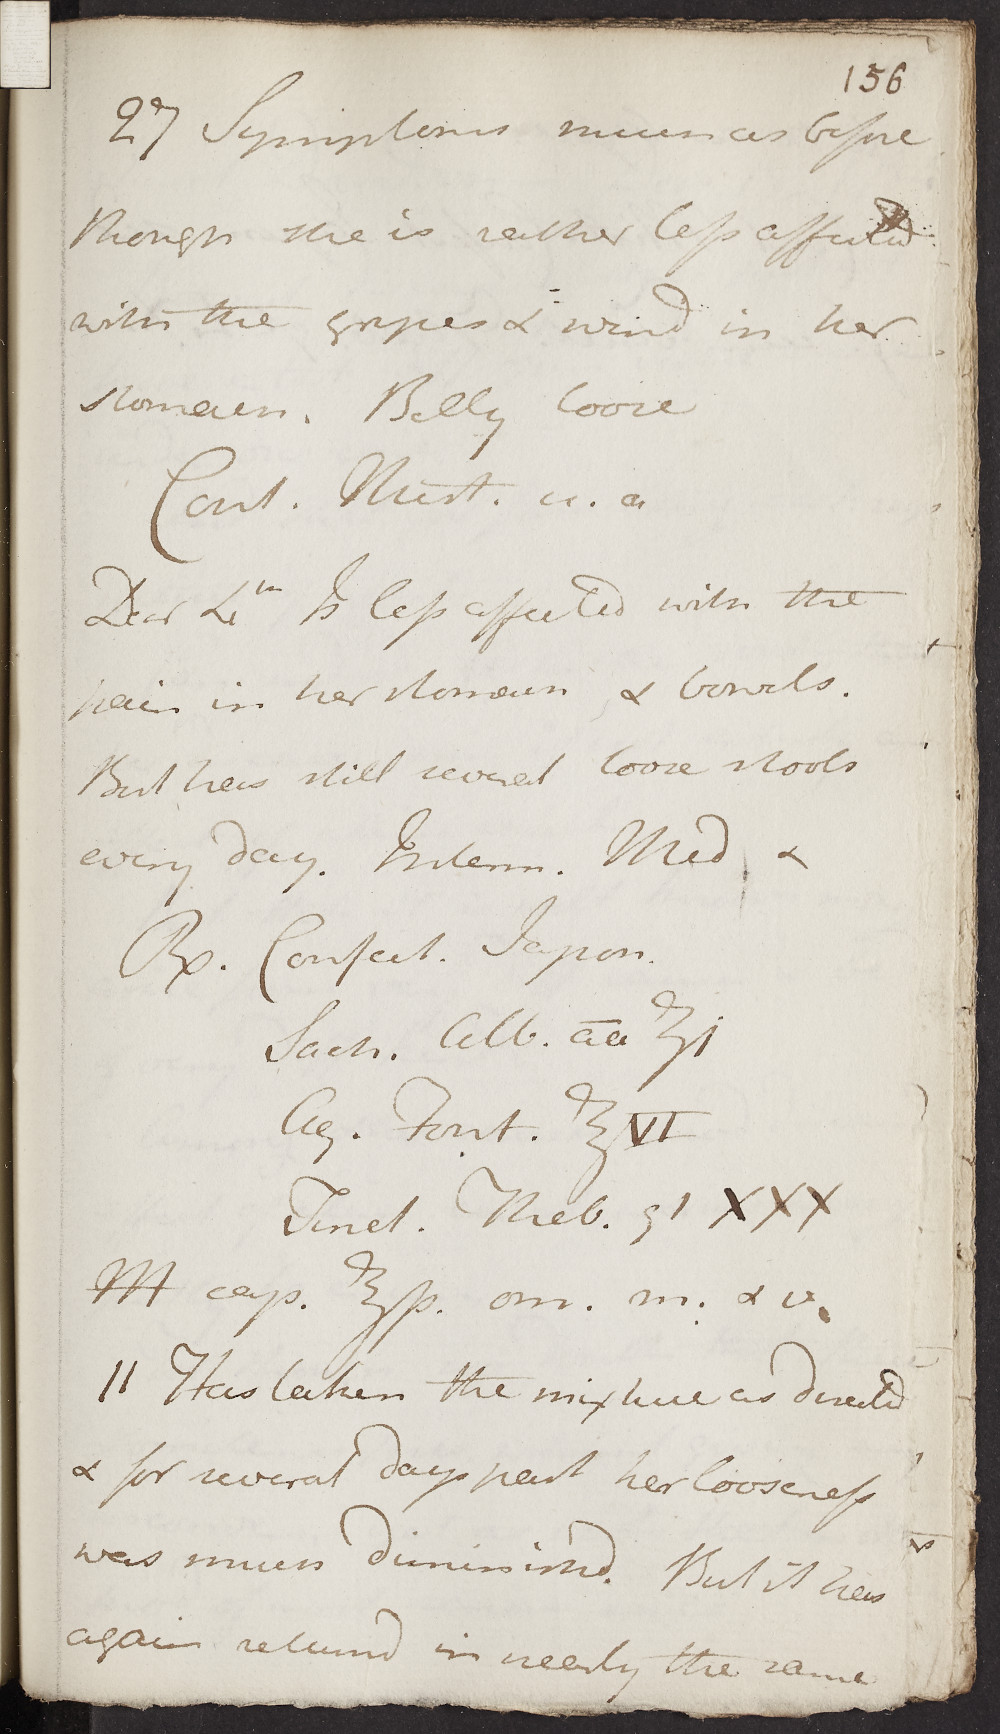 156
27 Symptoms much as before
though she is rather less affected
with the gripes & wind in her
stomach. Belly loose
Cont. Mist. u. a
Decr 4th Is less affected with the
pain in her stomach & bowels.
But has still several loose stools
every day. Interm. Med &
Rx. Confect. Japon.
Sach. Alb. āā ℥j
Aq. Font. ℥VI
Tinct. Theb. gt XXX
M cap. ℥ß. om. m. & v.
11 Has taken the mixture as directed
& for several days past her looseness
was much diminishd. But it has
again returnd in nearly the same